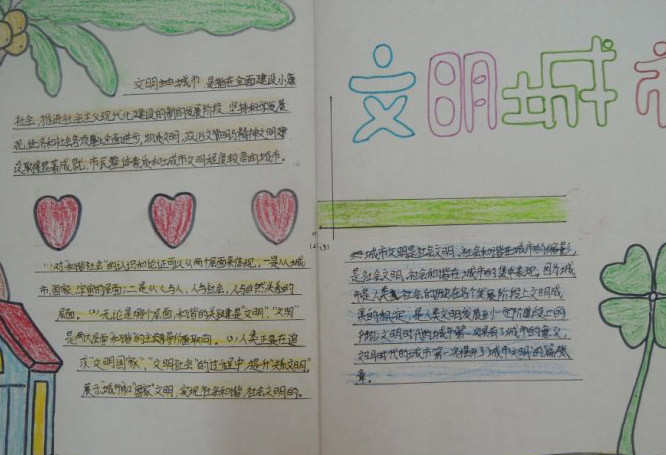 文明城市
文明城市 是指在全面建设小康
社会,推进社会主义现代化建设的新的发展阶段,坚持科学发展
观,经济和社会各项事业全面进步,物质文明,政治文明与精神文明建
设取得显著成就,市民整体素质和城市文明程度较高的城市。
(1)对和谐社会的认识和论证可以从两个层面来体现,一是从城
市,国家,宇宙的层面;二是从人与人,人与社会,人与自然关系的
层面。(2)无论是哪个层面,和谐的关键是"文明","文明"
是
(3)人类正是在追
求"文明国家","文明社会"的过程中,提升"城市文明"
展示城市和"国家"文明,实现社会和谐 社会文明的。
城市文明是社会文明,社会和谐在城市的缩影,
是社会文明,社会和谐在城市的集中表现,因为城
市是人类社会的历史在各个发展阶段上文明成
果的标志,是人类文明发展到一定阶段的
时代文明时代的城市第一次具有了城市的意义,
时代的城市第一次揭开了城市文明的篇
章。